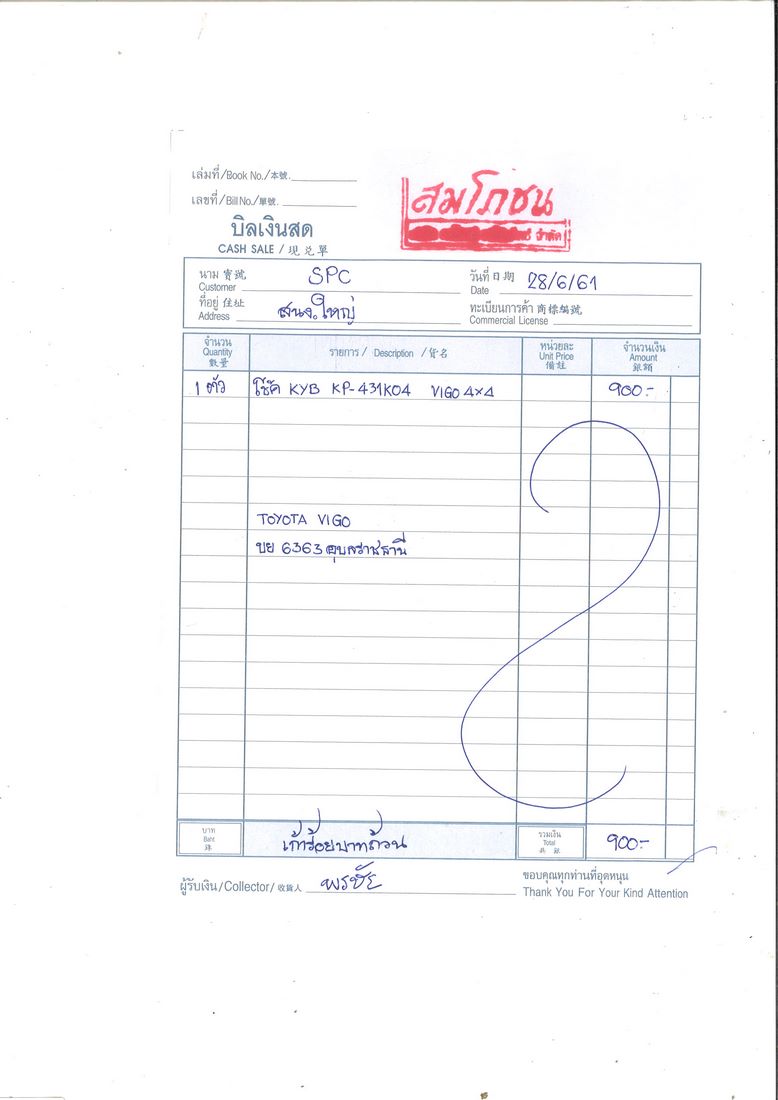 เล่มที่/Book No./本號.
เลขที่/Bill No./單號.
สมโภชน
จำกัด
บิลเงินสด
CASH SALE / 現兑單
นาม 寶號 SPC
Customer
วันที่ 日期 28/6/61
Date
ที่อยู่ 住址 สนง.ใหญ่
Address
ทะเบียนการค้า 商標編號
Commercial License
จำนวน รายการ / Description / 貨名 หน่วยละ จำนวนเงิน
Quantity Unit Price Amount
數量 備註 銀額
1 ตัว โช๊ค KYB KP-431K04 VIGO 4x4 900.-
TOYOTA VIGO
บย 6363 อุบลราชธานี
บาท เก้าร้อยบาทถ้วน รวมเงิน 900.-
Baht Total
銖 共銀
ผู้รับเงิน/Collector/收貨人 พรชัย
ขอบคุณทุกท่านที่อุดหนุน
Thank You For Your Kind Attention